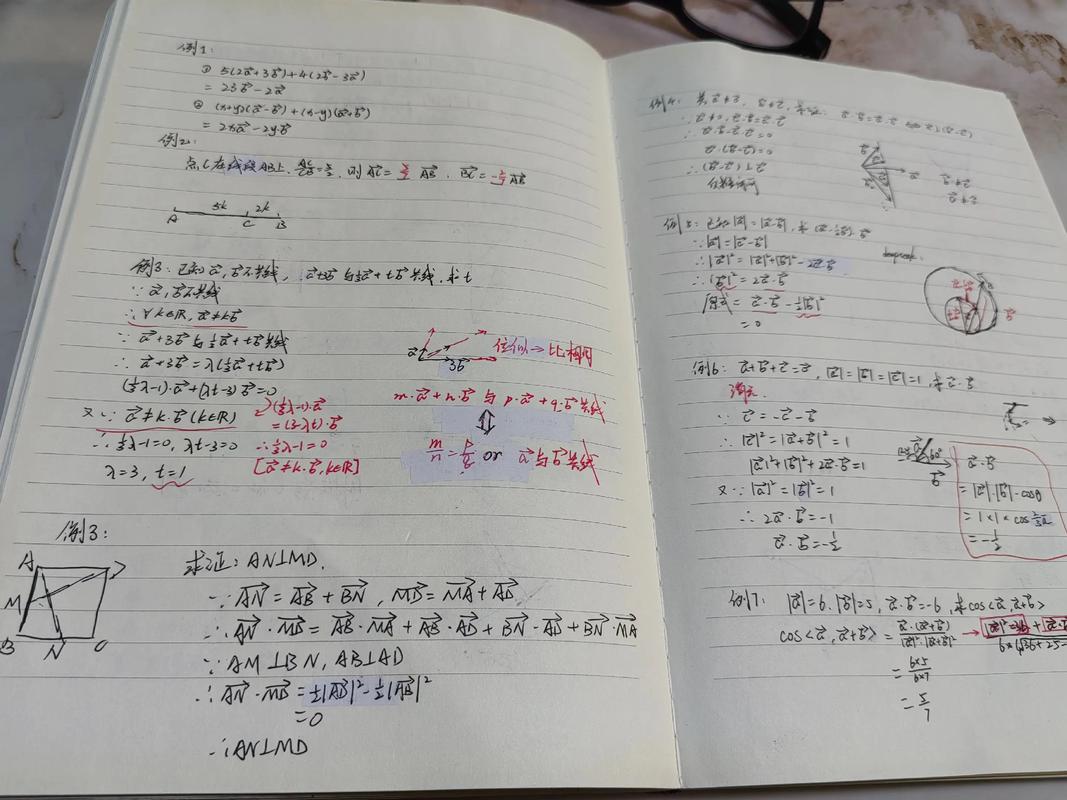 例1:
① 5(2a⃗+3b⃗)+4(2b⃗-3a⃗)
= 23b⃗-2a⃗
② (x+y)(a⃗-b⃗)+(x-y)(a⃗+b⃗)
= 2xa⃗-2yb⃗
例2:
点C在线段AB上, AC/CB=5/2, 则 AC⃗= 5/7 AB⃗, BC⃗=-2/7 AB⃗
5k 2k
A C B
例3: 已知a⃗, b⃗不共线, a⃗+3b⃗与⅓a⃗+tb⃗共线, 求t
∵ a⃗, b⃗不共线
∴ ∀k∈R, a⃗≠kb⃗
∵ a⃗+3b⃗与⅓a⃗+tb⃗共线
∴ a⃗+3b⃗=λ(⅓a⃗+tb⃗)
(⅓λ-1)·a⃗+(λt-3)b⃗=0
又∵ a⃗≠k·b⃗(k∈R)
∴ ⅓λ-1=0, λt-3=0
λ=3, t=1
(⅓λ-1)·a⃗
=(3-λt)·b⃗
∴⅓λ-1=0
[a⃗≠k·b⃗,k∈R]
a⃗
3b⃗
位似→比相同
m·a⃗+n·b⃗ 与 p·a⃗+q·b⃗共线
⇕
m/n=p/q or a⃗与b⃗共线
例3:
A
M
B N C
求证: AN⊥MD.
∵ AN⃗=AB⃗+BN⃗, MD⃗=MA⃗+AD⃗
∴ AN⃗·MD⃗=AB⃗·MA⃗+AB⃗·AD⃗+BN⃗·AD⃗+BN⃗·MA⃗
∵ AM⊥BN, AB⊥AD
∴ AN⃗·MD⃗=½|AD⃗|²-½|AB⃗|²
=0
∴ AN⊥MD
例4:
a⃗·b⃗-a⃗·c⃗=0
a⃗·(b⃗-c⃗)=0
∴(b⃗-c⃗)⊥a⃗
例5: 已知|a⃗|=|a⃗-b⃗|, 求(a⃗-½b⃗)·b⃗
∵ |a⃗|=|a⃗-b⃗|
∴ |a⃗|²=|a⃗|²+|b⃗|²-2a⃗·b⃗
∴ |b⃗|²=2a⃗·b⃗
原式=a⃗·b⃗-½|b⃗|²
=0
deepseek.
例6: a⃗+b⃗+c⃗=0⃗, |a⃗|=|b⃗|=|c⃗|=1, 求a⃗·b⃗
消元
∵ c⃗=-a⃗-b⃗
∴ |c⃗|²=|a⃗+b⃗|²=1
|a⃗|²+|b⃗|²+2a⃗·b⃗=1
又∵ |a⃗|²=|b⃗|²=1
∴ 2a⃗·b⃗=-1
a⃗·b⃗=-½
60°
b⃗
a⃗·b⃗
=|a⃗|·|b⃗|·cosθ
=1×1×cos⅔π
=-½
例7: |a⃗|=6, |b⃗|=5, a⃗·b⃗=-6, 求cos<a⃗,a⃗+b⃗>
cos<a⃗,a⃗+b⃗>=a⃗·(a⃗+b⃗)/|a⃗|·|a⃗+b⃗|
=6×5/6×7
=5/7